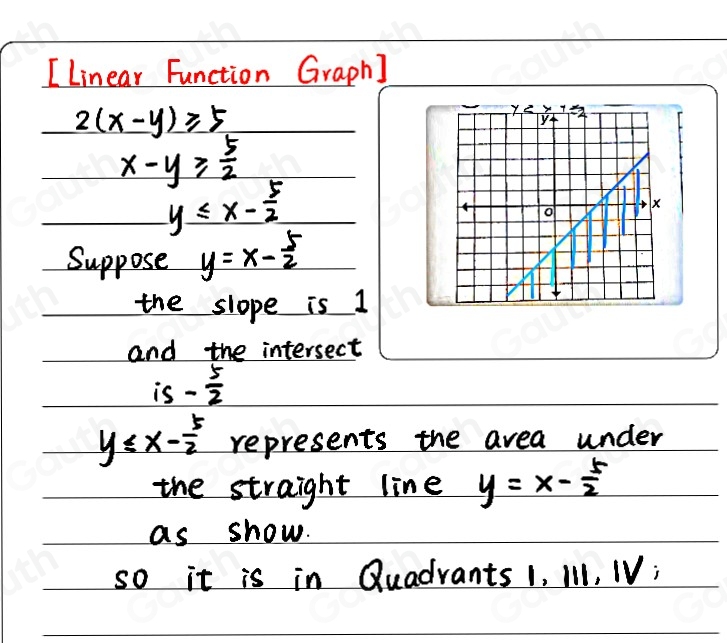 [Linear Function Graph]
2(x-y) ≥ 5
x-y ≥ 5/2
y ≤ x - 5/2
Suppose y = x - 5/2
the slope is 1
and the intersect
is - 5/2
y ≤ x - 5/2 represents the area under
the straight line y = x - 5/2
as show.
so it is in Quadrants I, III, IV;
y
x
O
Gauth